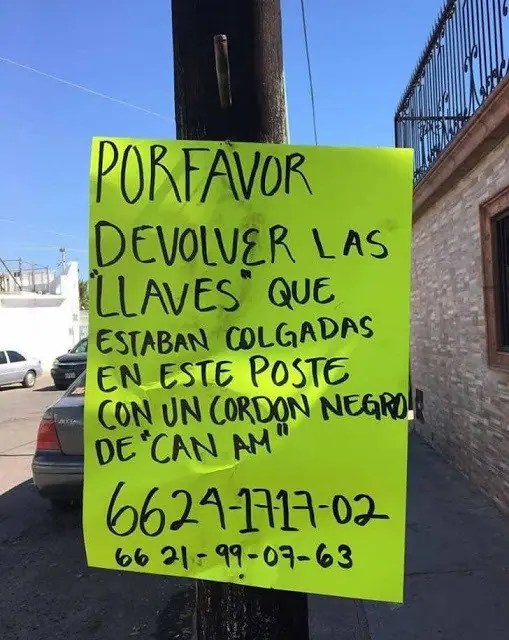 PORFAVOR
DEVOLVER LAS
"LLAVES" QUE
ESTABAN COLGADAS
EN ESTE POSTE
CON UN CORDON NEGRO
DE "CAN AM"
6624-1717-02
6621-99-07-63